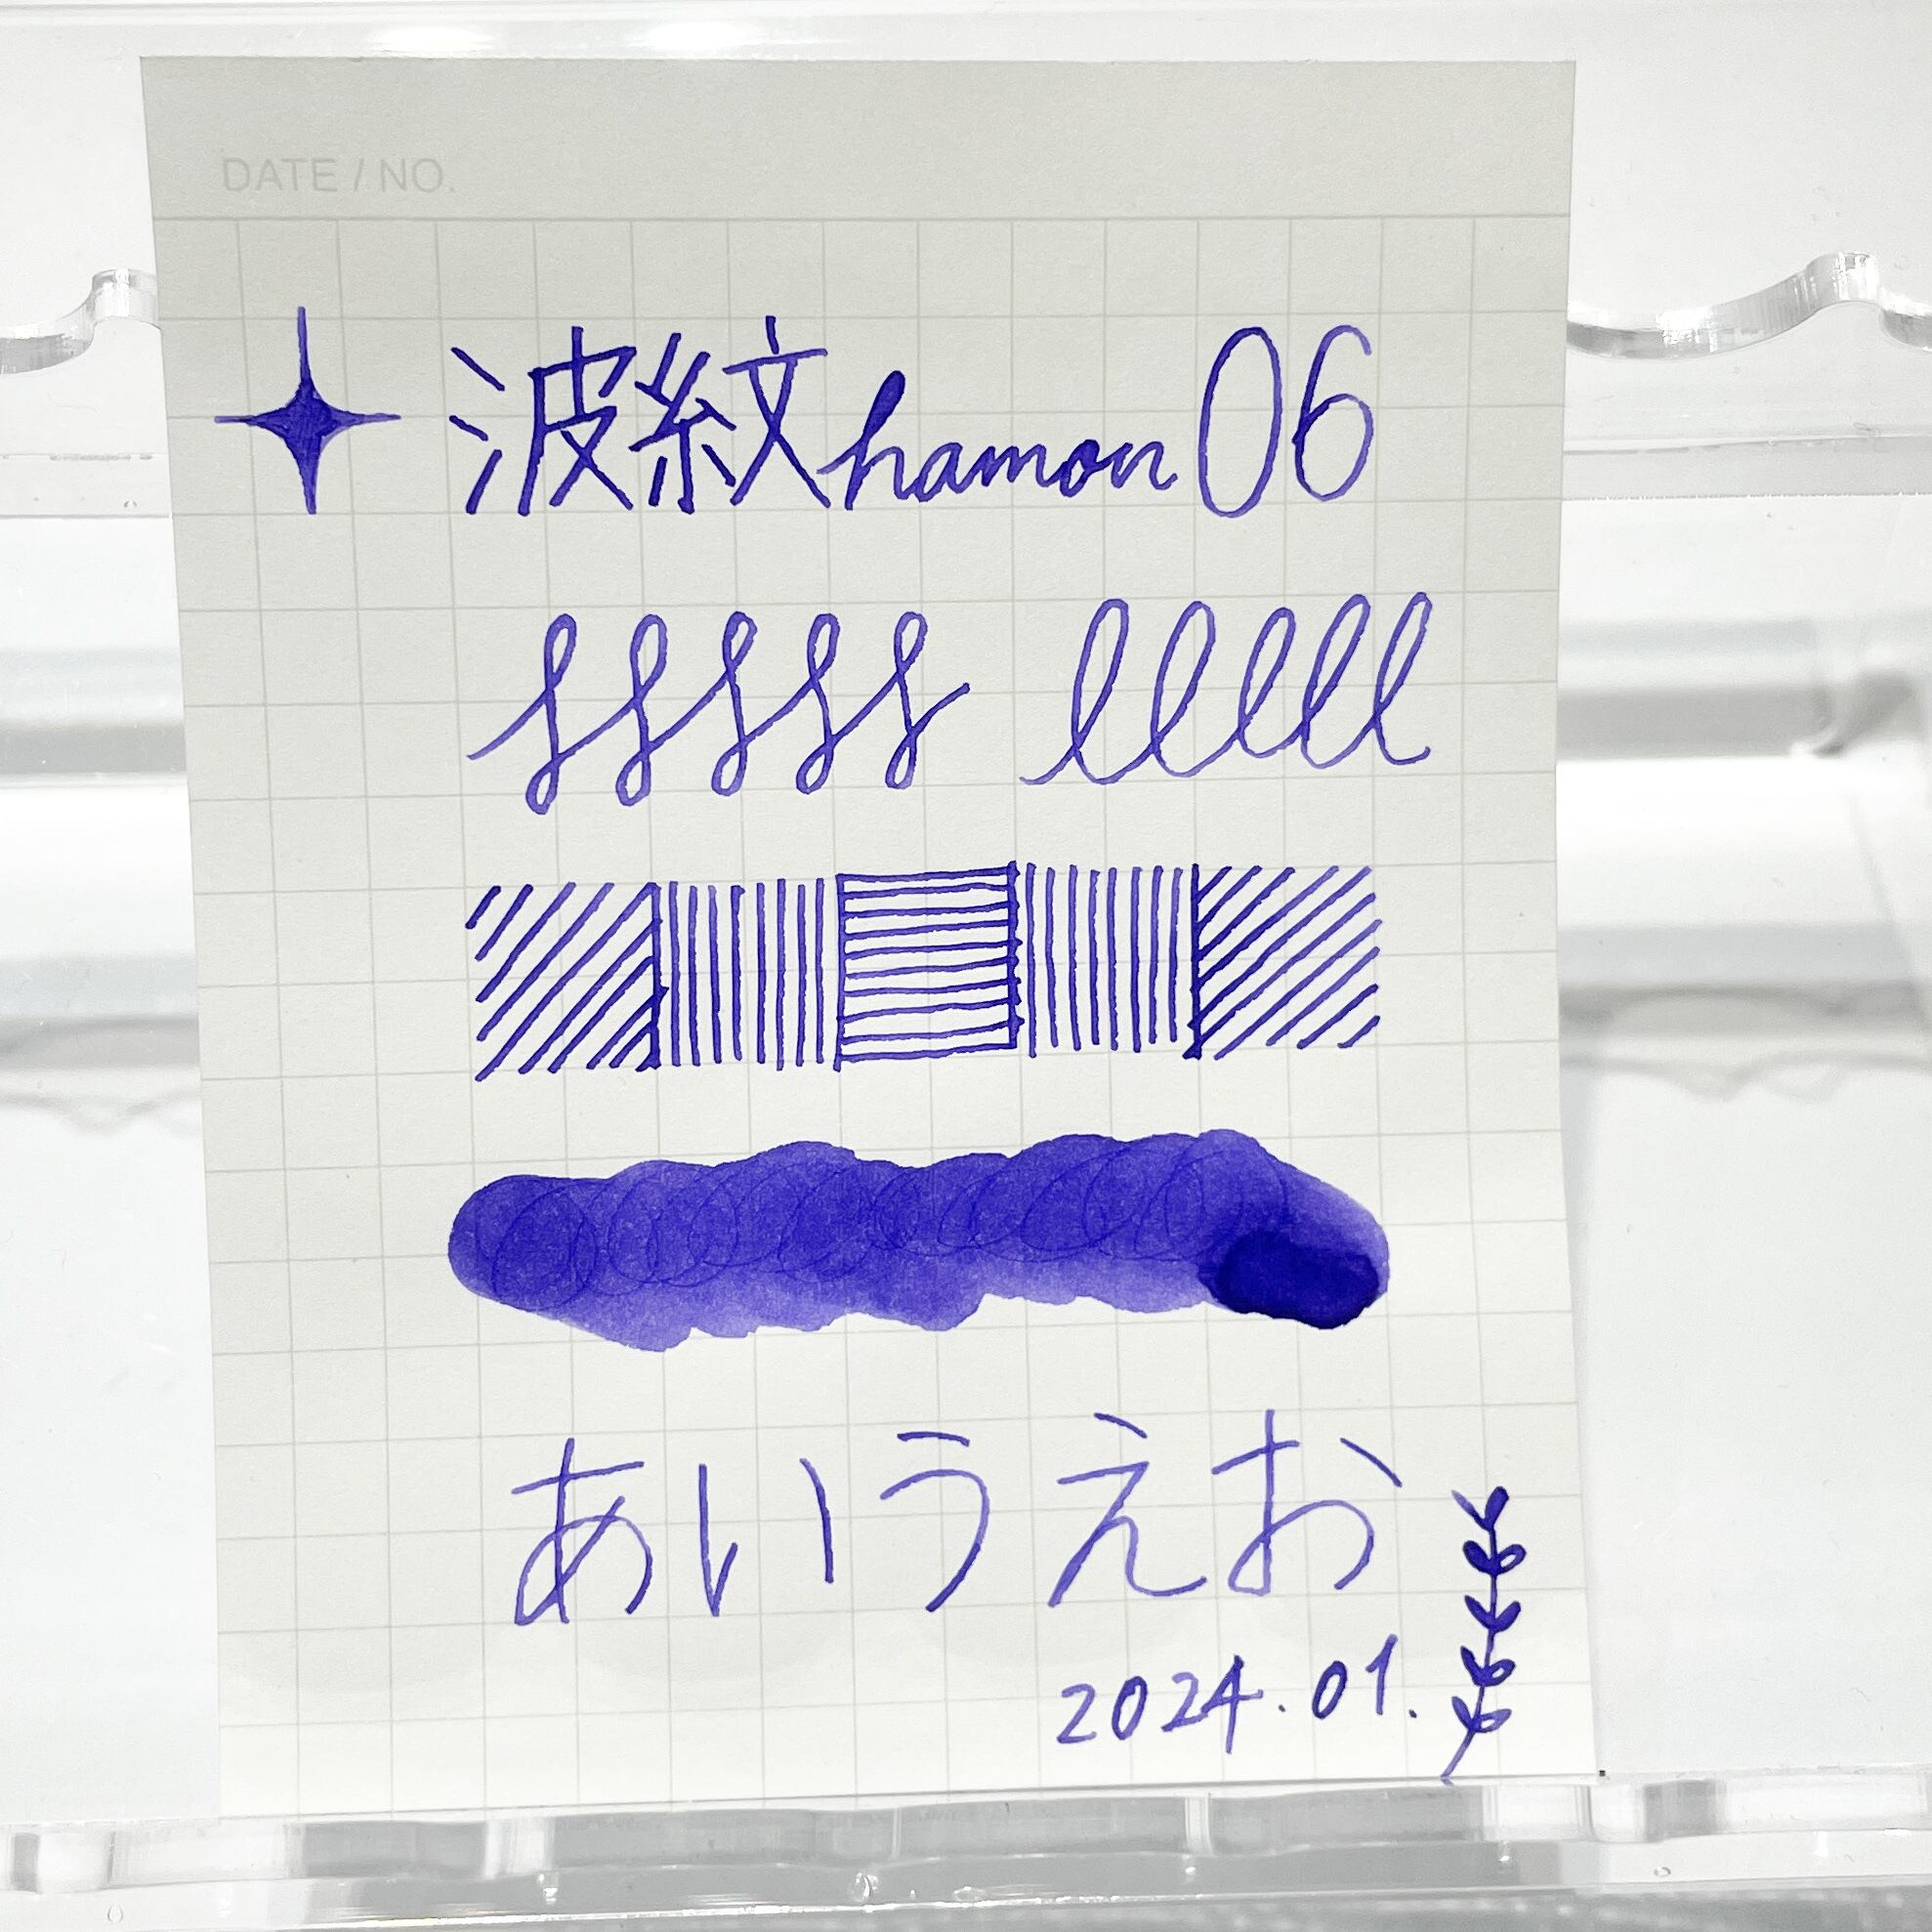 DATE / NO.
波紋hamon 06
sssss lllll
あいうえお
2024.01.